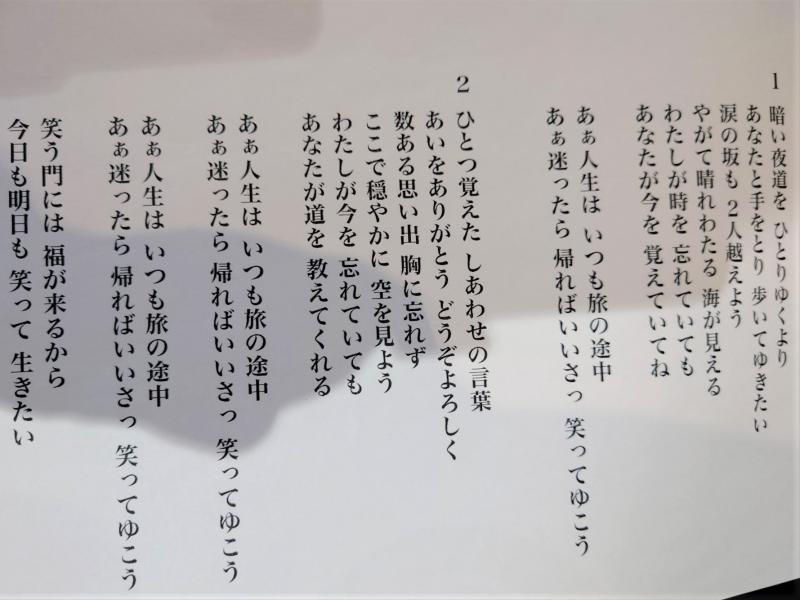 1
暗い夜道を ひとりゆくより
あなたと手をとり 歩いてゆきたい
涙の坂も 2人越えよう
やがて晴れわたる 海が見える
わたしが時を 忘れていても
あなたが今を 覚えていてね
あぁ人生は いつも旅の途中
あぁ迷ったら 帰ればいいさっ 笑ってゆこう
2
ひとつ覚えた しあわせの言葉
あいをありがとう どうぞよろしく
数ある思い出 胸に忘れず
ここで穏やかに 空を見よう
わたしが今を 忘れていても
あなたが道を 教えてくれる
あぁ人生は いつも旅の途中
あぁ迷ったら 帰ればいいさっ 笑ってゆこう
あぁ人生は いつも旅の途中
あぁ迷ったら 帰ればいいさっ 笑ってゆこう
笑う門には 福が来るから
今日も明日も 笑って 生きたい